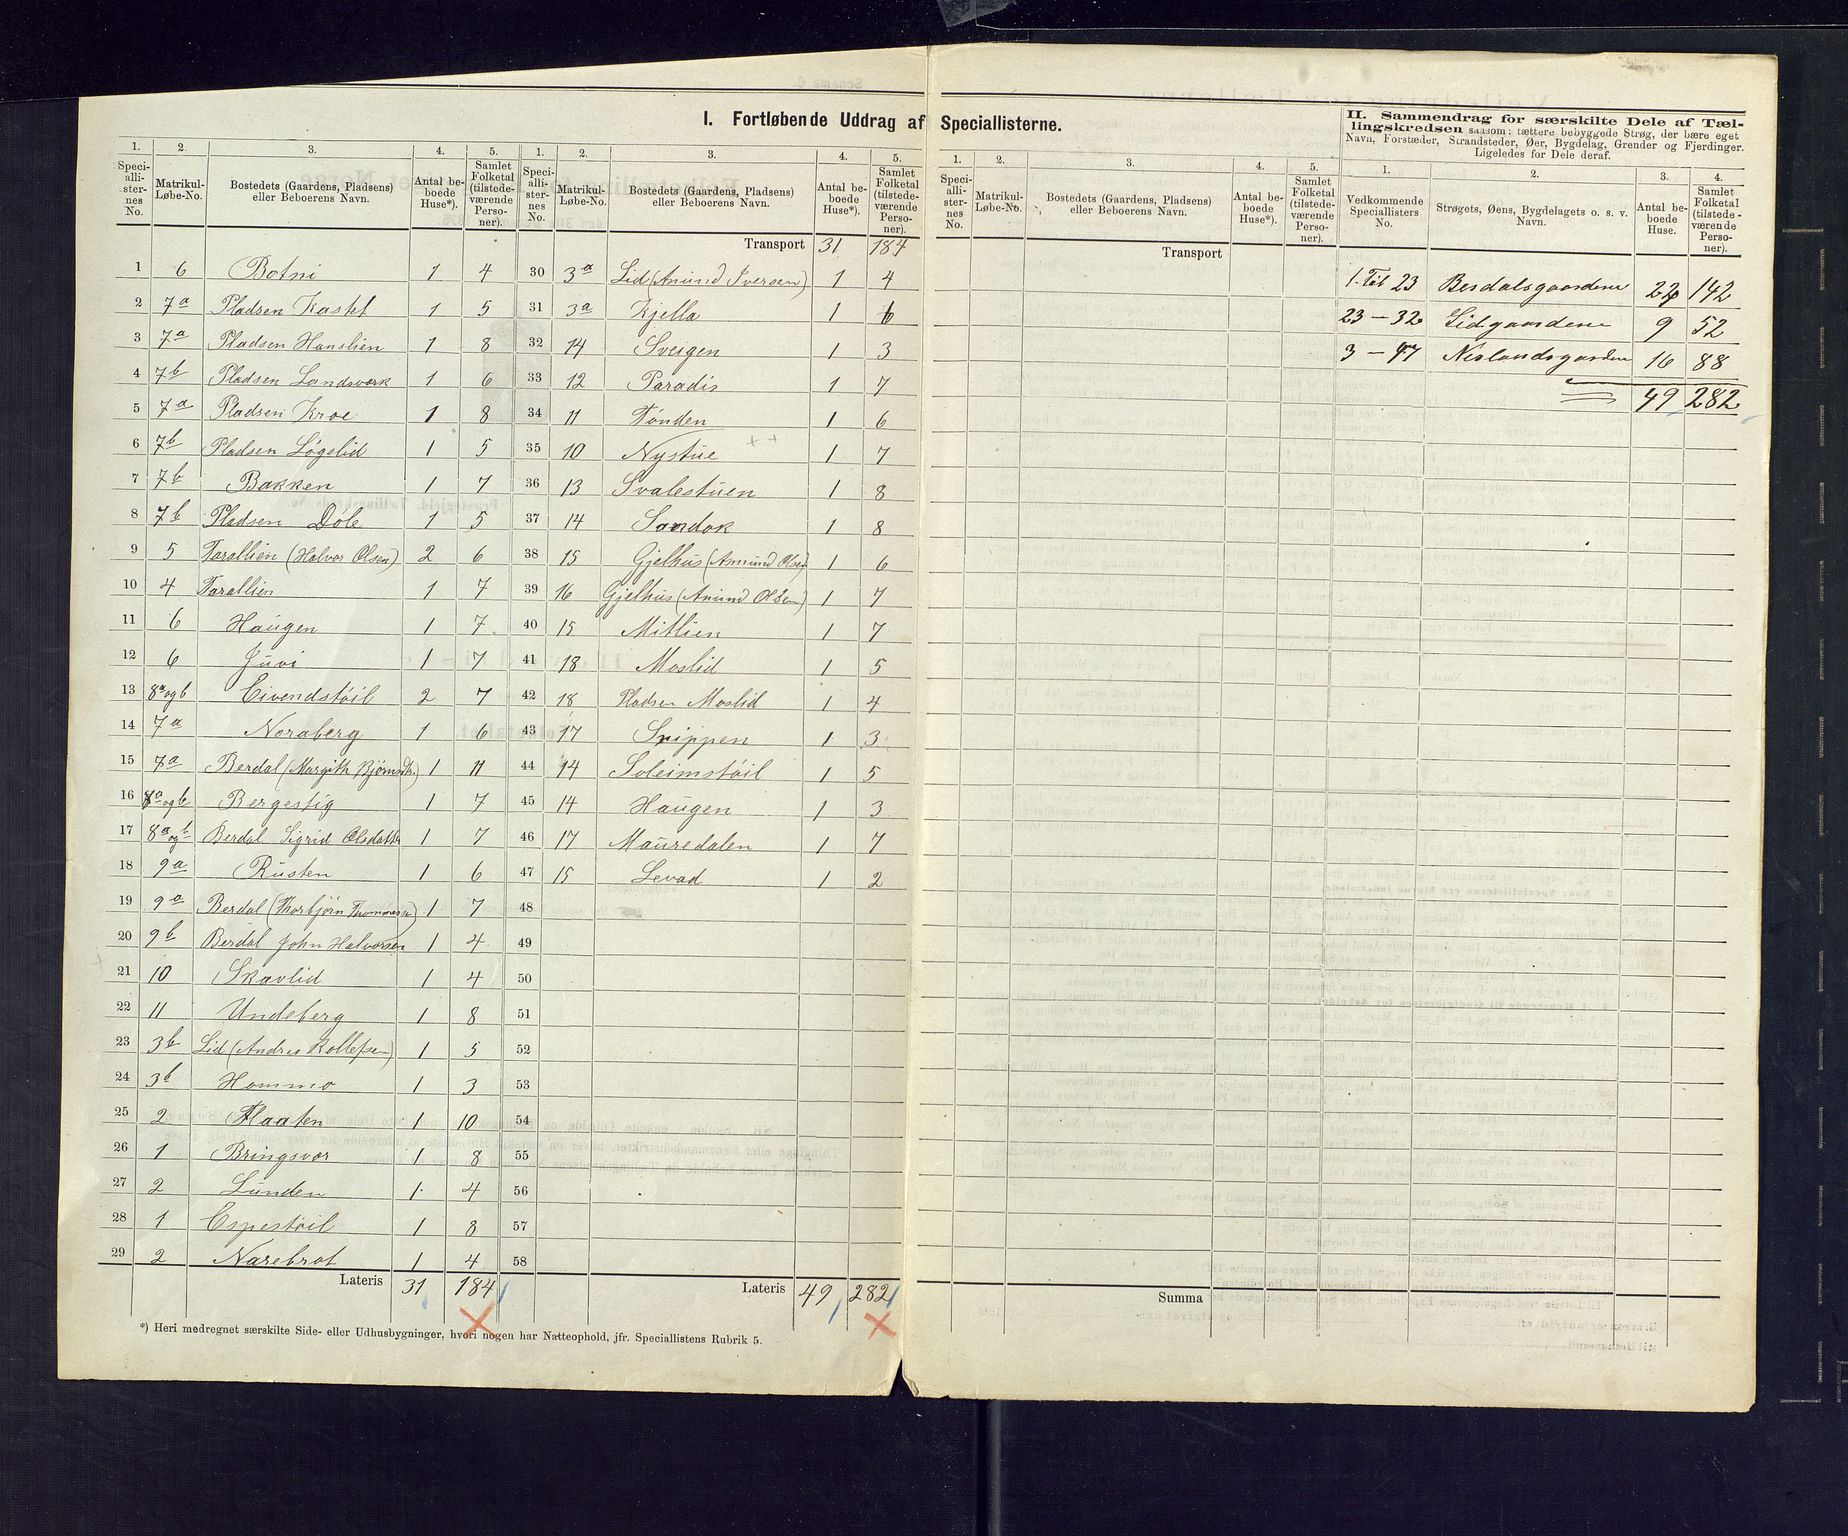 I. Fortløbende Uddrag af Speciallisterne.
II. Sammendrag for særskilte Dele af Tællingskredsen saasom: tættere bebyggede Strøg, der bære eget
Navn, Forstæder, Strandsteder, Øer, Bygdelag, Grender og Fjerdinger.
Ligeledes for Dele deraf.
1. 2. 3. 4. 5. 1. 2. 3. 4. 5.
Speciallisternes No. Matrikul-Løbe-No. Bostedets (Gaardens, Pladsens) eller Beboerens Navn. Antal beboede Huse*). Samlet Folketal (tilstedeværende Personer).
1 6 Botni 1 4
2 7a Pladsen Kastet 1 5
3 7a Pladsen Hanslien 1 8
4 7b Pladsen Landsværk 1 6
5 7a Pladsen Kroe 1 8
6 7b Pladsen Løgslid 1 5
7 7b Bakken 1 7
8 7b Pladsen Døle 1 5
9 5 Tarallien (Halvor Olsen) 2 6
10 4 Tarallien 1 7
11 6 Haugen 1 7
12 6 Juvi 1 7
13 8a og b Eivendstøil 2 7
14 7a Noraberg 1 6
15 7a Berdal (Margith Bjørnsdtr.) 1 11
16 8a og b Bergestig 1 7
17 8a og b Berdal Sigrid Olsdatter 1 7
18 9a Rusten 1 6
19 9a Berdal (Thorbjørn Thommesen) 1 7
20 9b Berdal John Halvorsen 1 4
21 10 Skavlid 1 4
22 11 Undeberg 1 8
23 3b Lid (Andres Rollefsen) 1 5
24 3b Hommo 1 3
25 2 Flaaten 1 10
26 1 Bringsvor 1 8
27 2 Lunden 1 4
28 1 Espestøil 1 8
29 2 Narebrot 1 4
Lateris 31 184
Transport 31 184
30 3a Lid (Anund Iversen) 1 4
31 3a Kjella 1 6
32 14 Sveigen 1 3
33 12 Paradis 1 7
34 11 Tønden 1 6
35 10 Nystue 1 7
36 13 Svalestuen 1 8
37 14 Sandok 1 8
38 15 Gjelhus (Amund Olsen) 1 6
39 16 Gjelhus (Anund Olsen) 1 7
40 15 Mitlien 1 7
41 18 Moslid 1 5
42 18 Pladsen Moslid 1 4
43 17 Snippen 1 3
44 14 Soleimstøil 1 5
45 14 Haugen 1 3
46 17 Mauredalen 1 7
47 15 Levad 1 2
48
49
50
51
52
53
54
55
56
57
58
Lateris 49 282
*) Heri medregnet særskilte Side- eller Udhusbygninger, hvori nogen har Natteophold, jfr. Speciallistens Rubrik 5.
1. 2. 3. 4. 5.
Speciallisternes No. Matrikul-Løbe-No. Bostedets (Gaardens, Pladsens) eller Beboerens Navn. Antal beboede Huse*). Samlet Folketal (tilstedeværende Personer).
Transport
Summa
1. 2. 3. 4.
Vedkommende Speciallisters No. Strøgets, Øens, Bygdelagets o. s. v. Navn. Antal beboede Huse. Samlet Folketal (tilstedeværende Personer).
1 Til 23 Berdalsgaardene 142
23 - 32 Lidgaardene 9 52
3 - 47 Neslandsgaardene 16 88
49 282